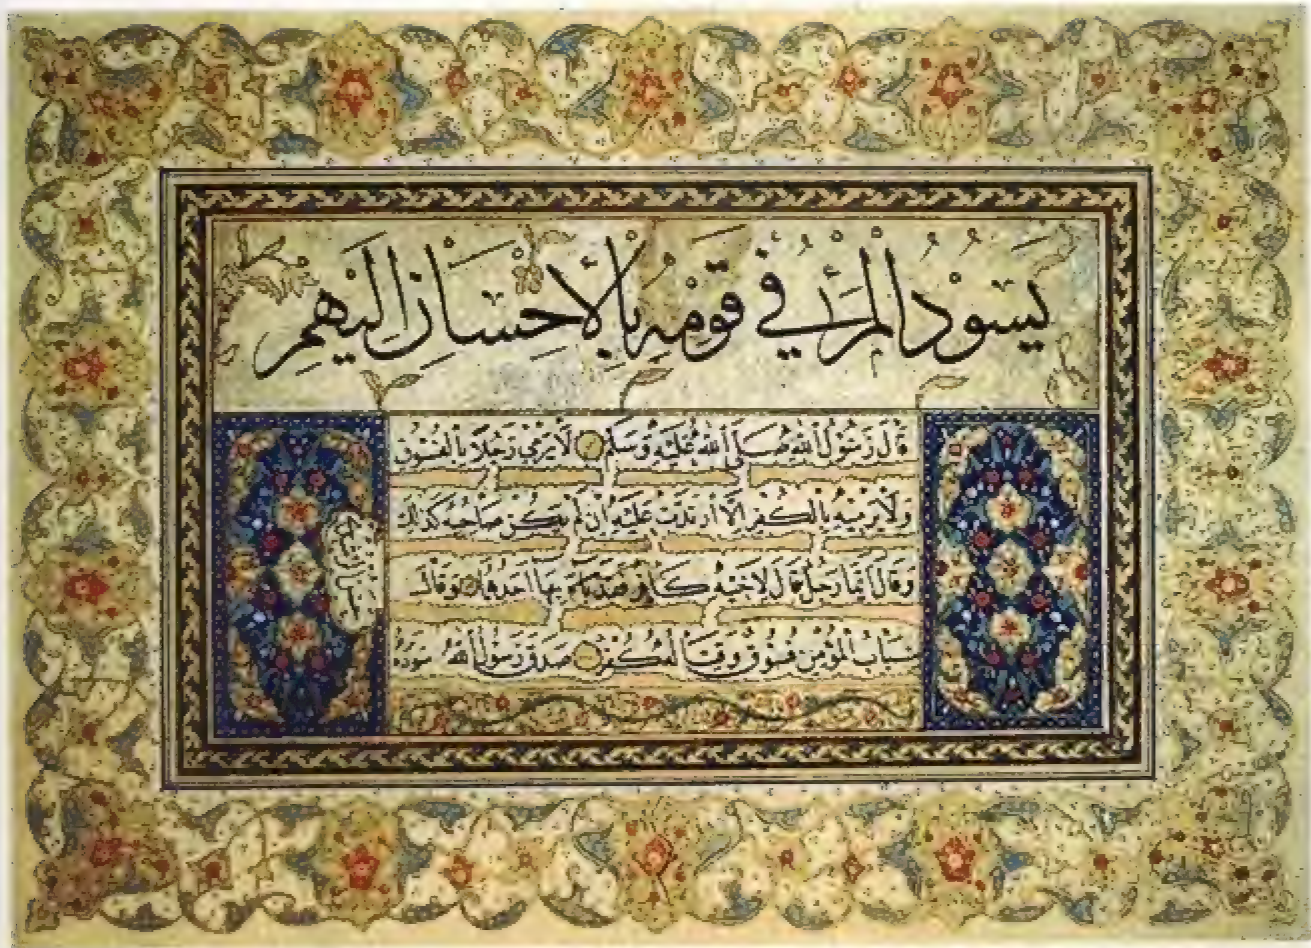 يسود المرء في قومه بالاحسان اليهم
قال رسول الله صلى الله عليه وسلم لا يرمي رجلا بالفسوق
ولا يرميه بالكفر الا ارتدت عليه ان لم يكن صاحبه كذلك
وقال ايما رجل قال لاخيه كافر فقد باء بها احدهما وقال
سباب المؤمن فسوق وقتاله كفر صدق رسول الله سوده